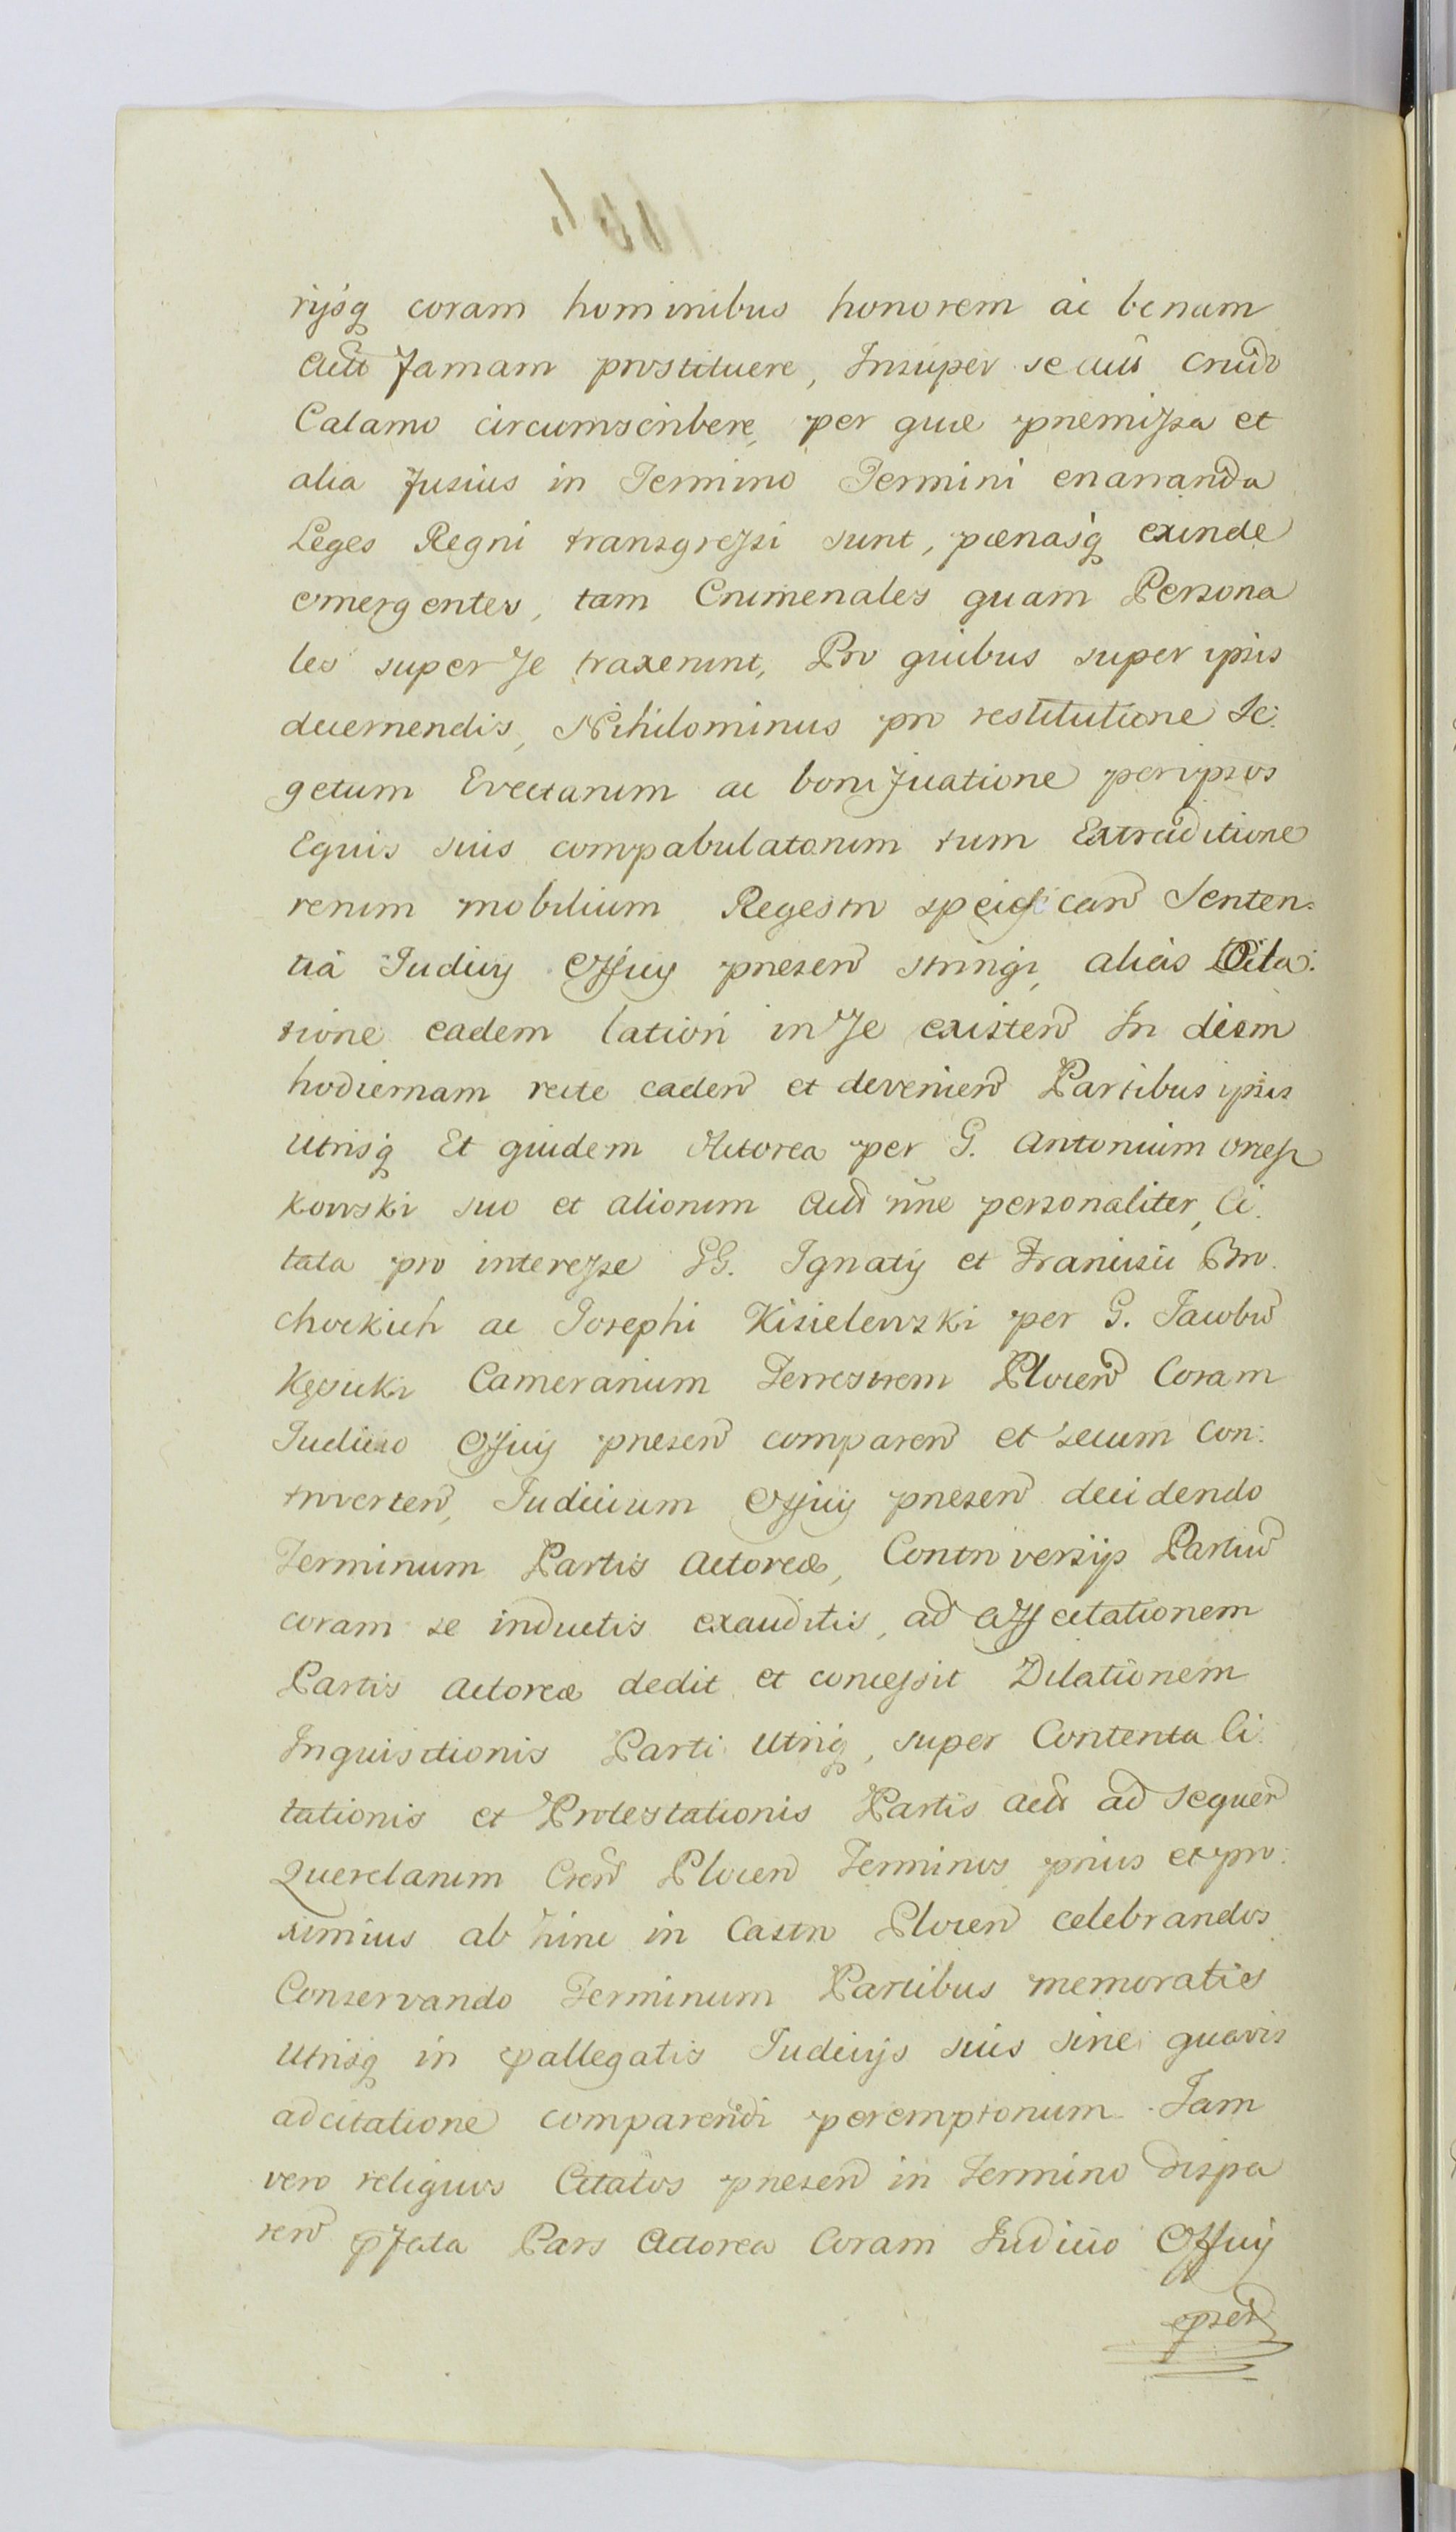 rijsq coram hominibus honorem ac bonam
Actt famam prostituere, Insuper secus crudo
Calamo circumscribere, per quæ præmissa et
alia fusius in Termino Termini enarranda
Leges Regni transgressi sunt, pœnasq exinde
emergentes, tam Crimenales quam Persona
les super se traxerunt, Pro quibus super ipsis
decernendis, Nihilominus pro restitutione Se:
getum Evectarum ac bonificatione per ipsos
Equis suis compabulatorum tum Extraditione
rerum mobilium Regestro specificand Senten:
tia Judicij Officij præsen stringi, alias Cita:
tione eadem lation in se existen In diem
hodiernam recte caden et devenien Partibus ipsis
utrisq Et quidem Actorea per G. Antonium Orzesz
kowski suo et aliorum Actt nne personaliter, Ci.
tata pro interesse GG. Ignatij et Francisci Bro.
chockich ac Josephi Kisielewski per G. Jacobu
Kęsicki Camerarium Terrestrem Plocen Coram
Judicio Officij præsen comparen et secum Con:
troverten, Judicium Officij præsen decidendo
Terminum Partis Actoreæ, Controversijs Partiu
coram se inductis exauditis, ad affectationem
Partis Actoreæ dedit et concessit Dilationem
Inquisitionis Parti utriq, super Contenta Ci.
tationis et Protestationis Partis Actt ad sequen
Querelarum Cren Plocen Terminos prius et pro:
ximius ab hinc in Castro Plocen celebrandos
Conservando Terminum Partibus memoratis
utrisq in pallegatis Judicijs suis sine quavis
adcitatione comparendi peremptorium. Jam
vero reliquos Citatos præsen in Termino dispa
ren pfata Pars Actorea Coram Judicio Officij
psen